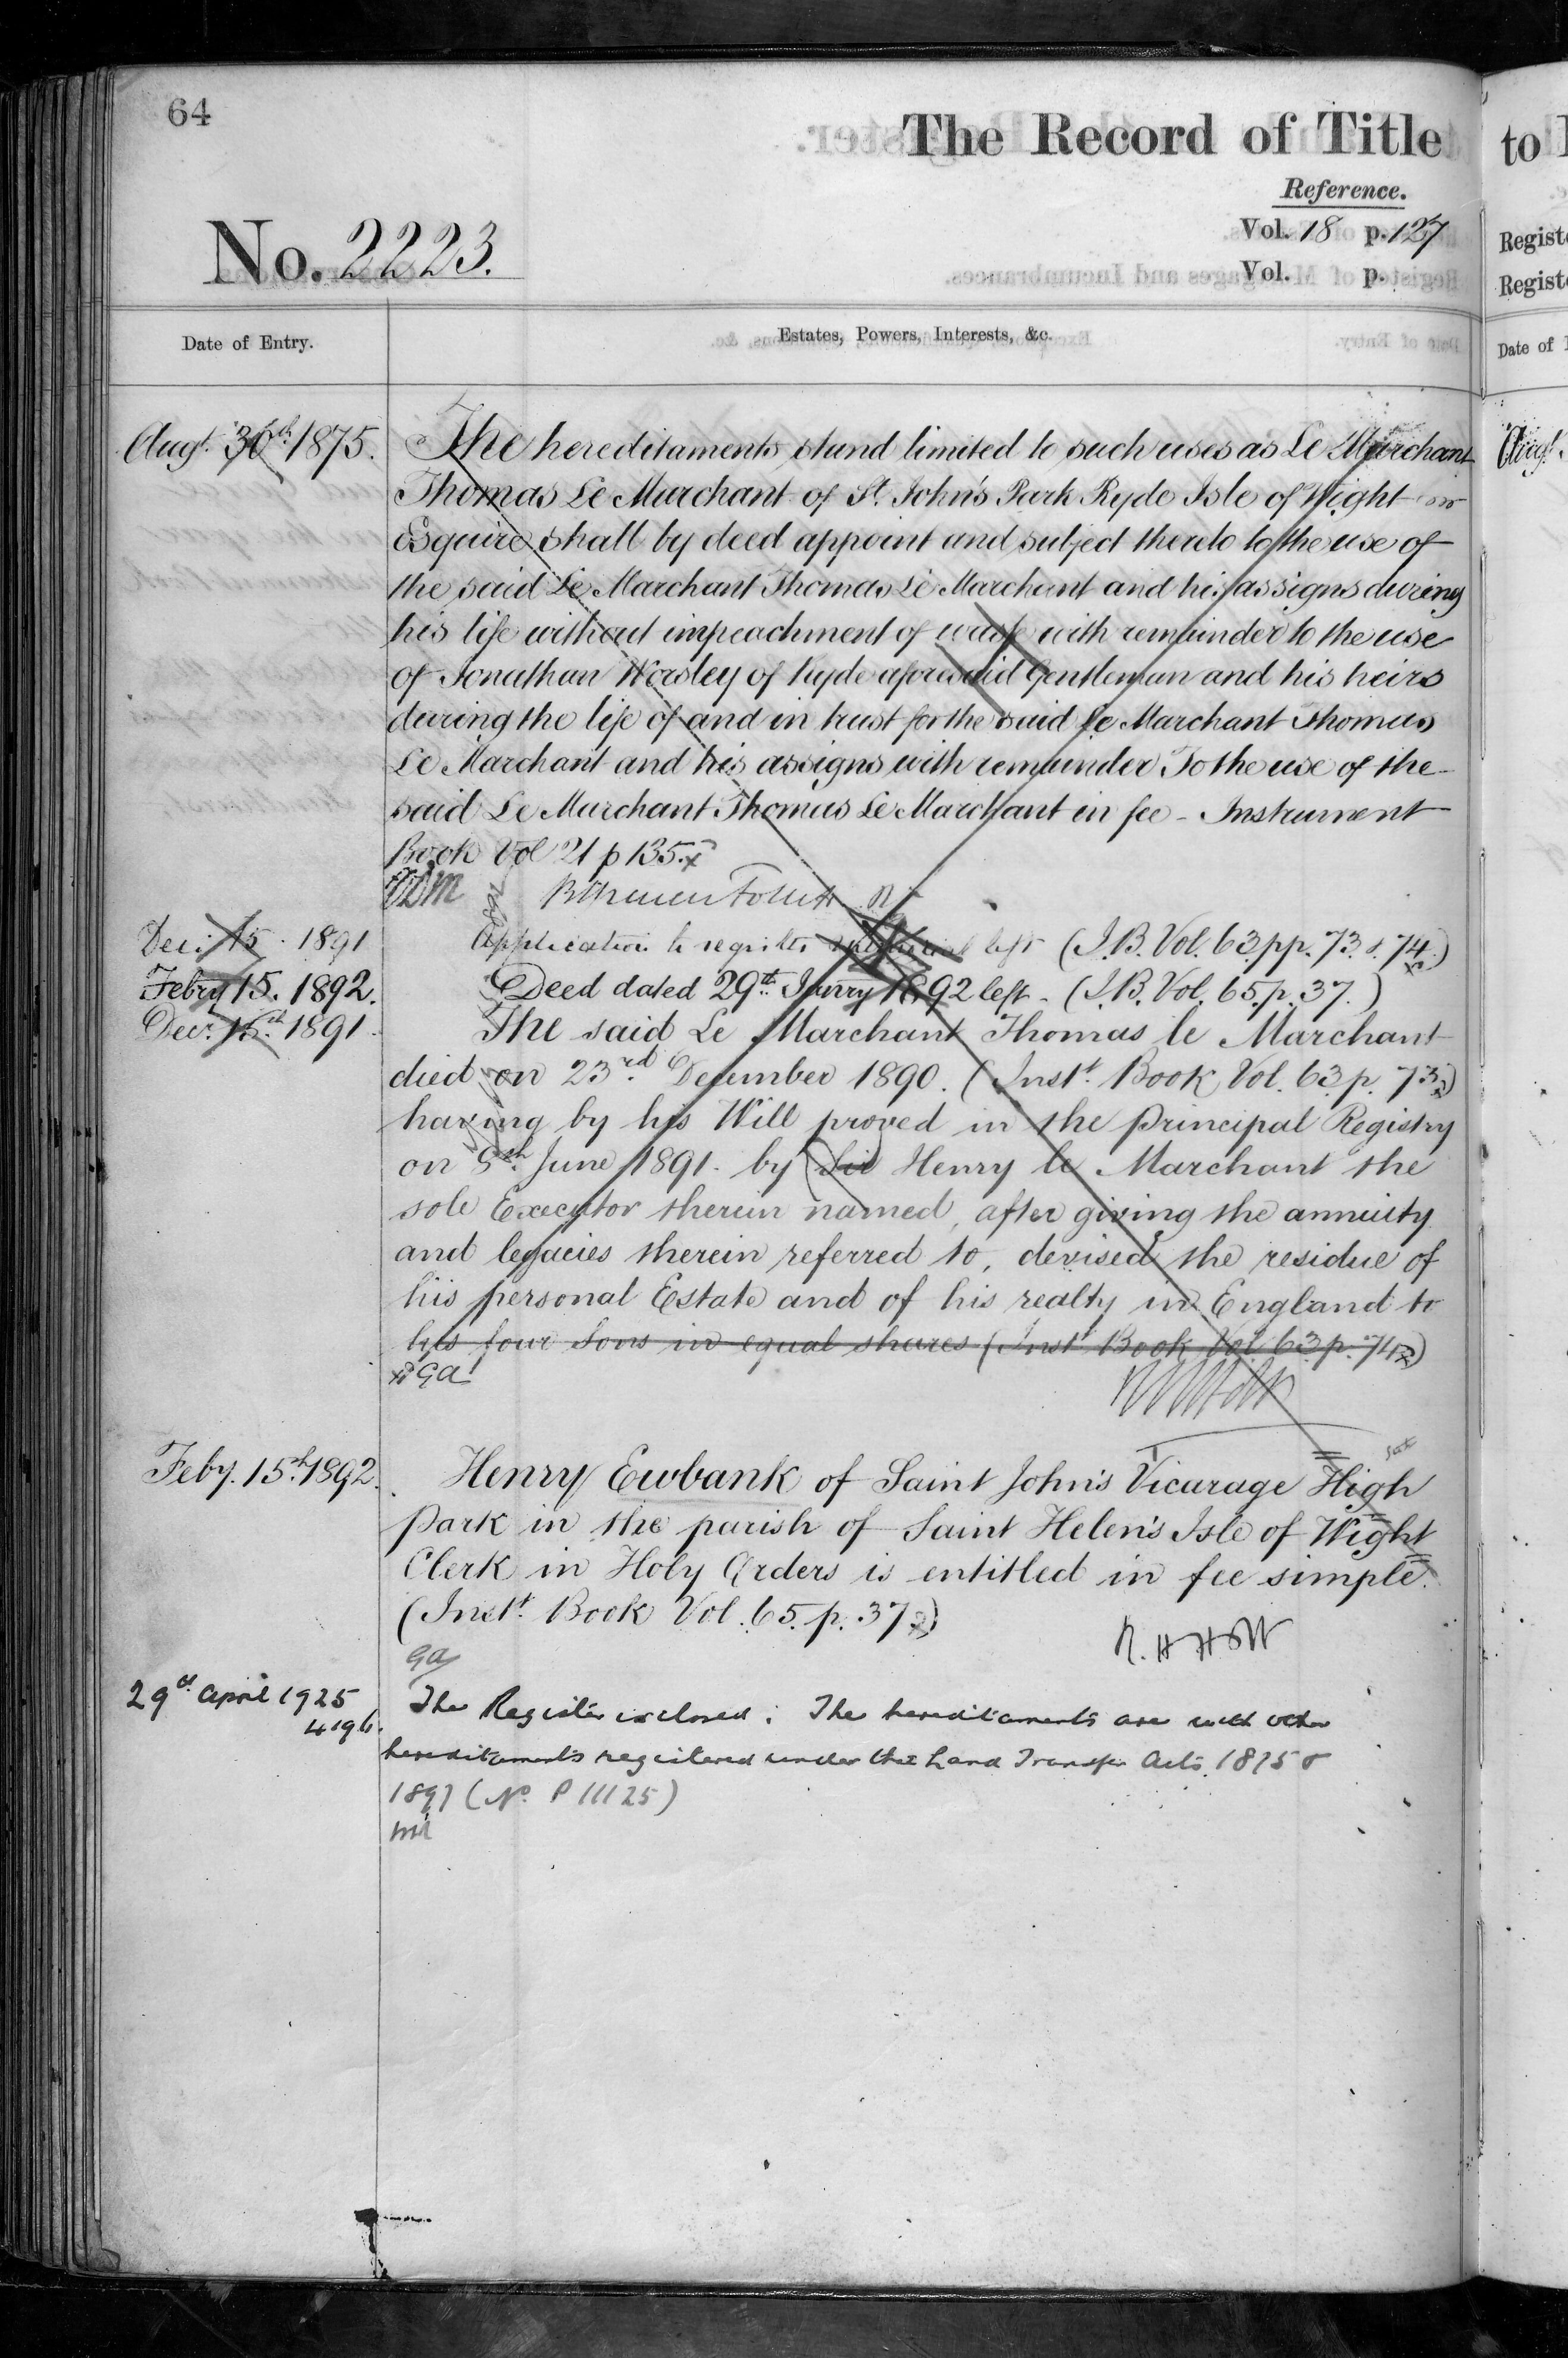 64
The Record of Title
Reference.
Vol. 18 p. 127
No. 2223.
Vol. p.
Date of Entry.
Estates, Powers, Interests, &c.
Augt. 30th 1875.
The hereditaments stand limited to such uses as Le Marchant
Thomas Le Marchant of St. John's Park Ryde Isle of Wight
Esquire shall by deed appoint and subject thereto to the use of
the said Le Marchant Thomas Le Marchant and his assigns during
his life without impeachment of waste with remainder to the use
of Jonathan Worsley of Ryde aforesaid Gentleman and his heirs
during the life of and in trust for the said Le Marchant Thomas
Le Marchant and his assigns with remainder To the use of the
said Le Marchant Thomas Le Marchant in fee - Instrument
Book Vol 21 p 135.
Dec: 15. 1891
Application to register left (I.B. Vol. 63 pp. 73 & 74.)
Febry 15. 1892.
Deed dated 29th Janry 1892 left - (I.B. Vol. 65. p. 37.)
Decr. 15th 1891.
The said Le Marchant Thomas le Marchant
died on 23rd December 1890. (Instt. Book Vol. 63. p. 73)
having by his Will proved in the Principal Registry
on 5th June 1891. by (Sir) Henry le Marchant the
sole Executor therein named, after giving the annuity
and legacies therein referred to, devised the residue of
his personal Estate and of his realty in England to
his four Sons in equal shares (Inst Book Vol 63. p. 74)
Feby. 15th 1892.
Henry Ewbank of Saint John's Vicarage High
Park in the parish of Saint Helen's Isle of Wight
Clerk in Holy Orders is entitled in fee simple.
(Instt. Book Vol. 65. p. 37)
29th April 1925
The Register is closed: The hereditaments are with other
hereditaments registered under the Land Transfer Acts. 1875 &
1897 (No. P 11125)
to
Regist
Regist
Date of
Augt.